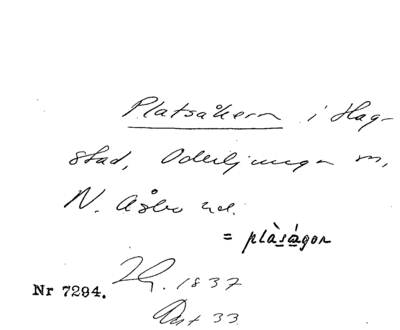 Platsåkern i Hag-
stad, Oderljunga sn,
N. Åsbo hd.
= plàságon
Nr 7294.
1837
33